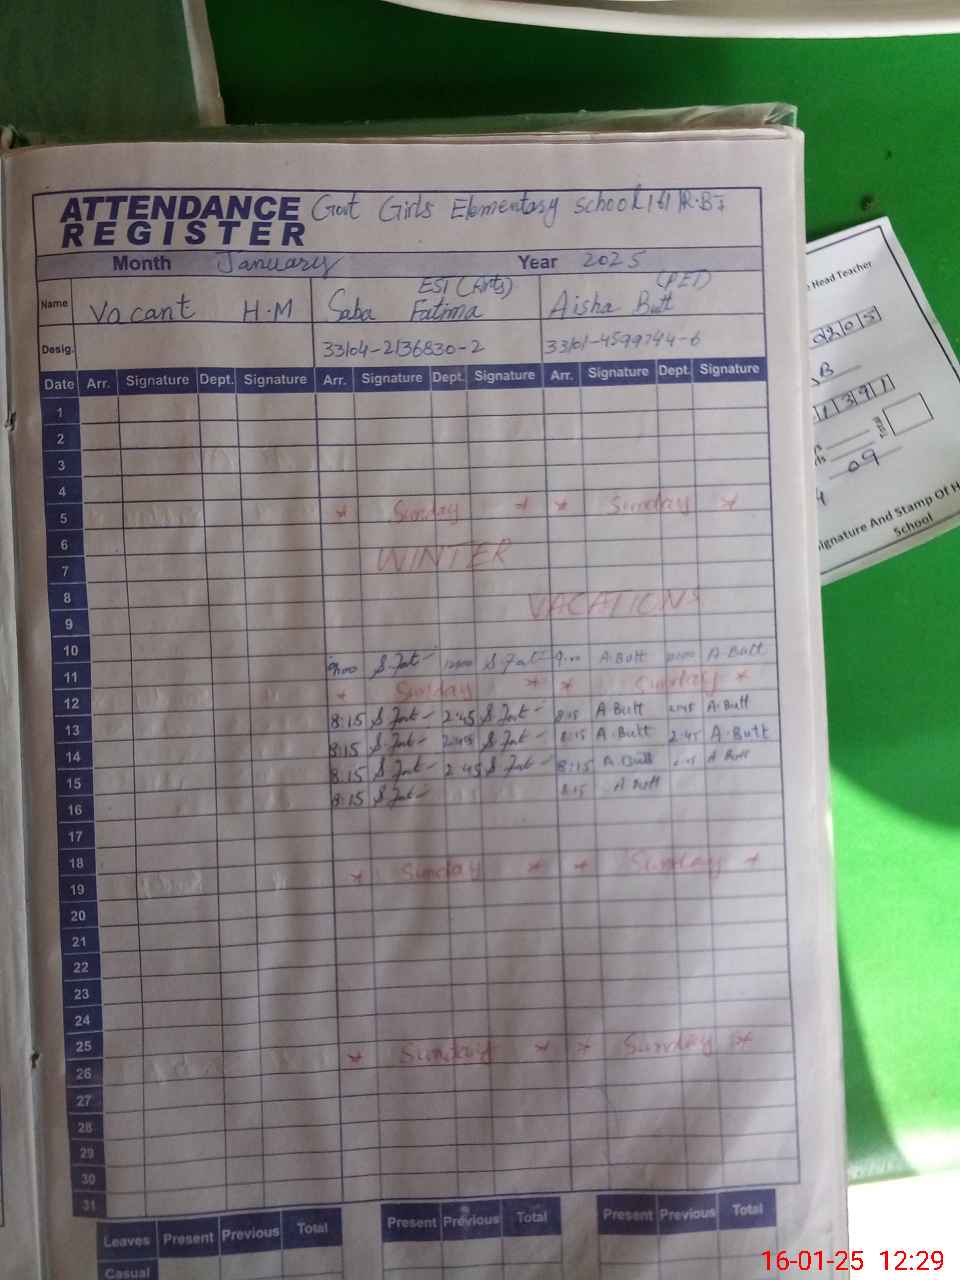 ATTENDANCE REGISTER
Govt Girls Elementary School R.B
Month January Year 2025
EST (Arts) (PET)
Name Vacant H.M Saba Fatima Aisha Butt
Desig. 33104-2136830-2 33101-4599744-6
Date Arr. Signature Dept. Signature Arr. Signature Dept. Signature Arr. Signature Dept. Signature
1
2
3
4
5 * Sunday * * Sunday *
6
7 WINTER
8
9 VACATIONS
10
11 9:00 S.Fat 12:00 S.Fat 9:00 A.Butt A.Butt
12 * Sunday * * Sunday *
13 8:15 S.Fat 2:45 S.Fat 8:15 A.Butt 2:45 A.Butt
14 8:15 S.Fat 2:45 S.Fat 8:15 A.Butt 2:45 A.Butt
15 8:15 S.Fat 2:45 S.Fat 8:15 A.Butt A.Butt
16 8:15 S.Fat 8:15 A.Butt
17
18
19 * Sunday * * Sunday *
20
21
22
23
24
25
26 * Sunday * * Sunday *
27
28
29
30
31
Leaves Present Previous Total Present Previous Total Present Previous Total
Casual
Head Teacher
0205
B
1391
Total
09
Signature And Stamp Of
School
16-01-25 12:29